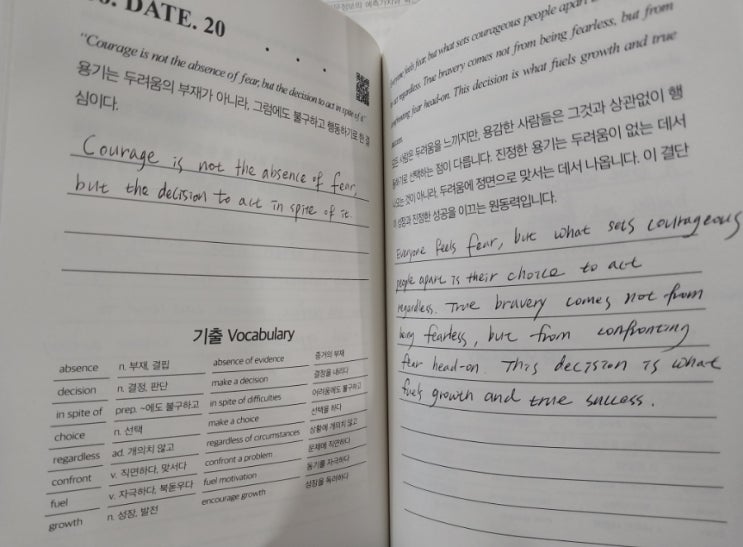 DATE. 20
"Courage is not the absence of fear, but the decision to act in spite of it"
용기는 두려움의 부재가 아니라, 그럼에도 불구하고 행동하기로 한 결
심이다.
Courage is not the absence of fear,
but the decision to act in spite of it.
기출 Vocabulary
absence n. 부재, 결핍 absence of evidence 증거의 부재
decision n. 결정, 판단 make a decision 결정을 내리다
in spite of prep. ~에도 불구하고 in spite of difficulties 어려움에도 불구하고
choice n. 선택 make a choice 선택을 하다
regardless ad. 개의치 않고 regardless of circumstances 상황에 개의치 않고
confront v. 직면하다, 맞서다 confront a problem 문제에 직면하다
fuel v. 자극하다, 북돋우다 fuel motivation 동기를 자극하다
growth n. 성장, 발전 encourage growth 성장을 독려하다
feels fear, but what sets courageous people apart
regardless. True bravery comes not from being fearless, but from
fear head-on. This decision is what fuels growth and true
사람은 두려움을 느끼지만, 용감한 사람들은 그것과 상관없이 행
선택하는 점이 다릅니다. 진정한 용기는 두려움이 없는 데서
것이 아니라, 두려움에 정면으로 맞서는 데서 나옵니다. 이 결단
성장과 진정한 성공을 이끄는 원동력입니다.
Everyone feels fear, but what sets courageous
people apart is their choice to act
regardless. True bravery comes not from
being fearless, but from confronting
fear head-on. This decision is what
fuels growth and true success.